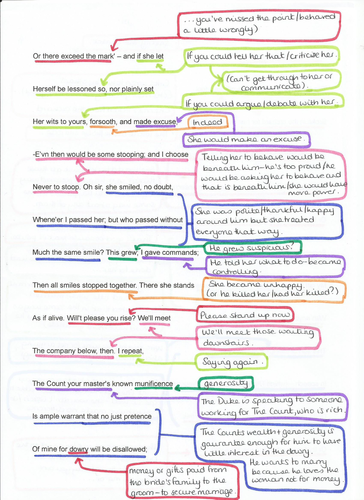 ...you've missed the point/behaved
a little wrongly)
Or there exceed the mark' – and if she let
If you could tell her that/critisise her.
(Can't get through to her or
communicate)
Herself be lessoned so, nor plainly set
If you could argue/debate with her
Her wits to yours, forsooth, and made excuse
Indeed
She would make an excuse
-E'vn then would be some stooping; and I choose
Telling her to behave would be
beneath him-he's too proud/he
would be asking her to behave and
that is beneath him/she would have
more power.
Never to stoop. Oh sir, she smiled, no doubt,
Whene'er I passed her; but who passed without
She was polite/thankful/happy
around him but she treated
everyone that way.
Much the same smile? This grew; I gave commands;
He grew suspicious?
He told her what to do-became
controlling.
Then all smiles stopped together. There she stands
She became unhappy
(or he killed her/had her killed?)
As if alive. Will't please you rise? We'll meet
Please stand up now
We'll meet those waiting
downstairs.
The company below, then. I repeat,
Saying again.
The Count your master's known munificence
generosity
The Duke is speaking to someone
working for The Count, who is rich.
Is ample warrant that no just pretence
The Counts wealth + generosity is
guarantee enough for him to have
little interest in the dowry.
Of mine for dowry will be disallowed;
He wants to marry
because he loves the
woman not for money
money or gifts paid from
the bride's family to the
groom-to secure marriage.